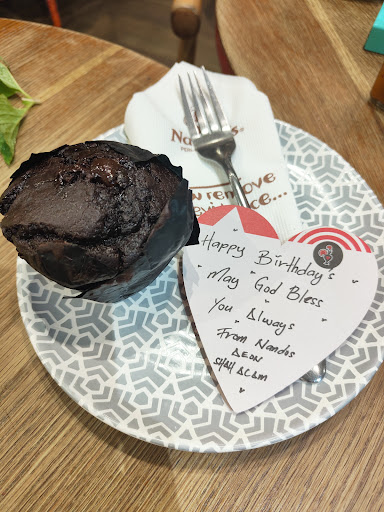 Nando's®
remove
Happy Birthday's
May God Bless
You Always
From Nandos
AEON
SHAH ALAM